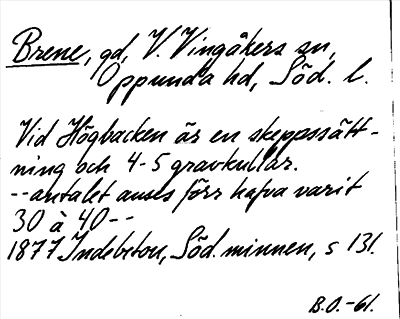 Brene, gd, V. Vingåkers sn,
Oppunda hd, Söd. l.
Vid Högbacken är en skeppssätt-
ning och 4-5 gravkullar.
--antalet anses förr hafva varit
30 à 40--
1877 Indebetou, Söd. minnen, s 131.
B.O.-61.